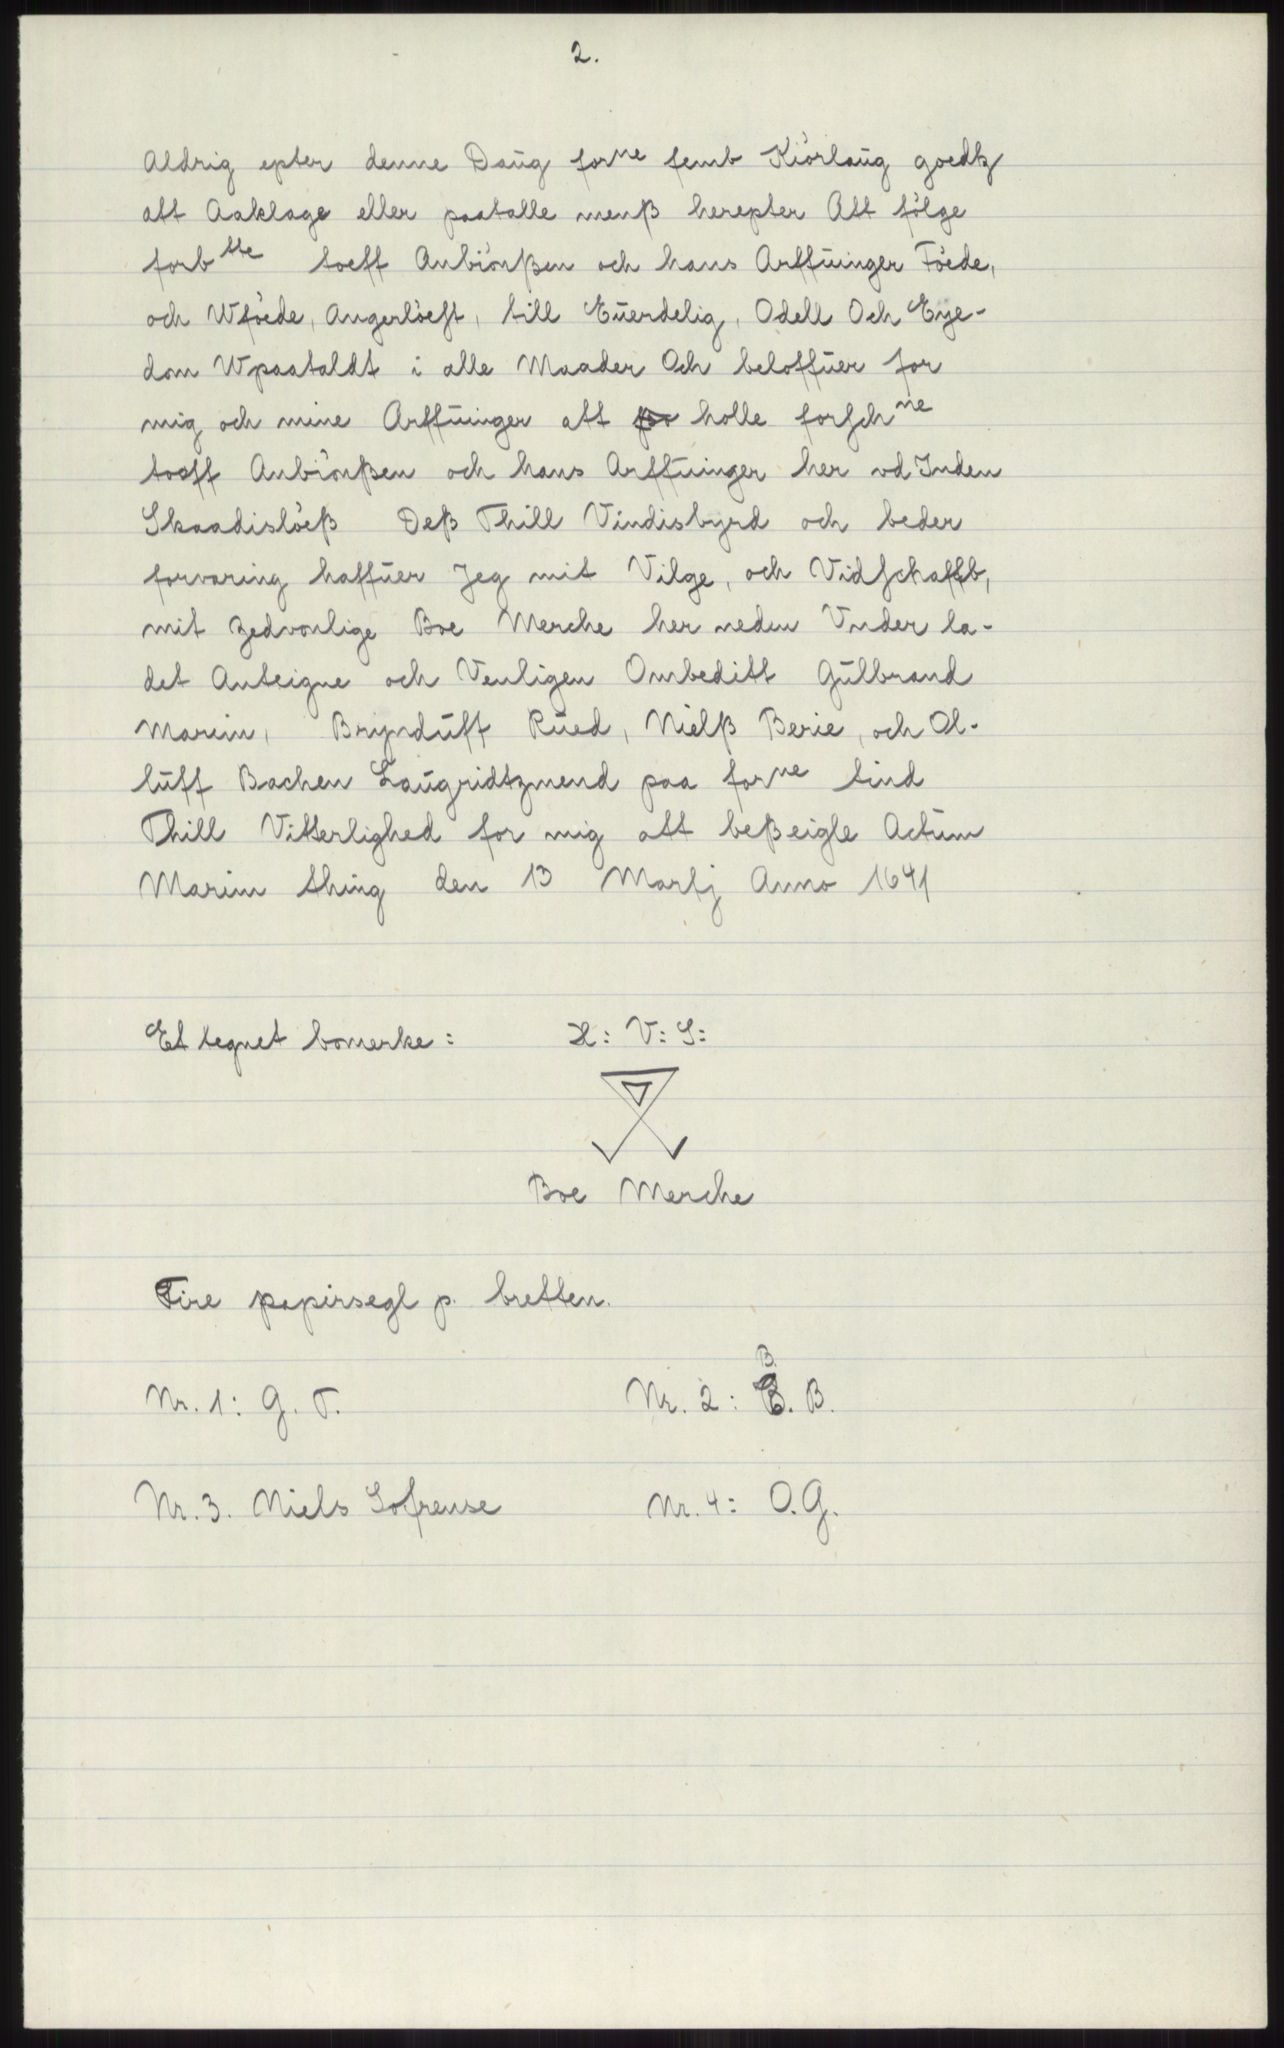 2.
Aldrig epter denne Daüg forne femb Kiörlaüg goedtz
att Aaklage eller paatalle menß herepter Att fölge
forbtte toeff Anbiönßen och hans Arffüinger Föede,
och Wföede, Angerlöeft, till Eüerdelig, Odell Och Eye-
dom Wpaataldt i alle Maader Och beloffüer for
mig och mine Arffüinger att holle forschne
toeff Anbiönßen och hans Arffüinger her vd Inden
Skaadislöeß Deß Thill Vindisbyrd och beder
forvaring haffüer Jeg mit Vilge, och Vidschaffb,
mit zedvonlige Boe Merche her neden Vnder la-
det Anteigne och Venligen Ombeditt Gülbrand
Marim, Brynduff Rüed, Nielß Berie, och Ol-
lüff Bachen Laügridtzmend paa forne tind
Thill Vitterlighed for mig att beßeigle Actüm
Marim thing den 13 Martj Anno 1641
Et tegnet bomerke: H: V: S:
Boe Merche
Fire papirsegl p. bretten.
Nr. 1: G. T. Nr. 2: B. B.
Nr. 3. Niels Sofrense Nr. 4: O. G.